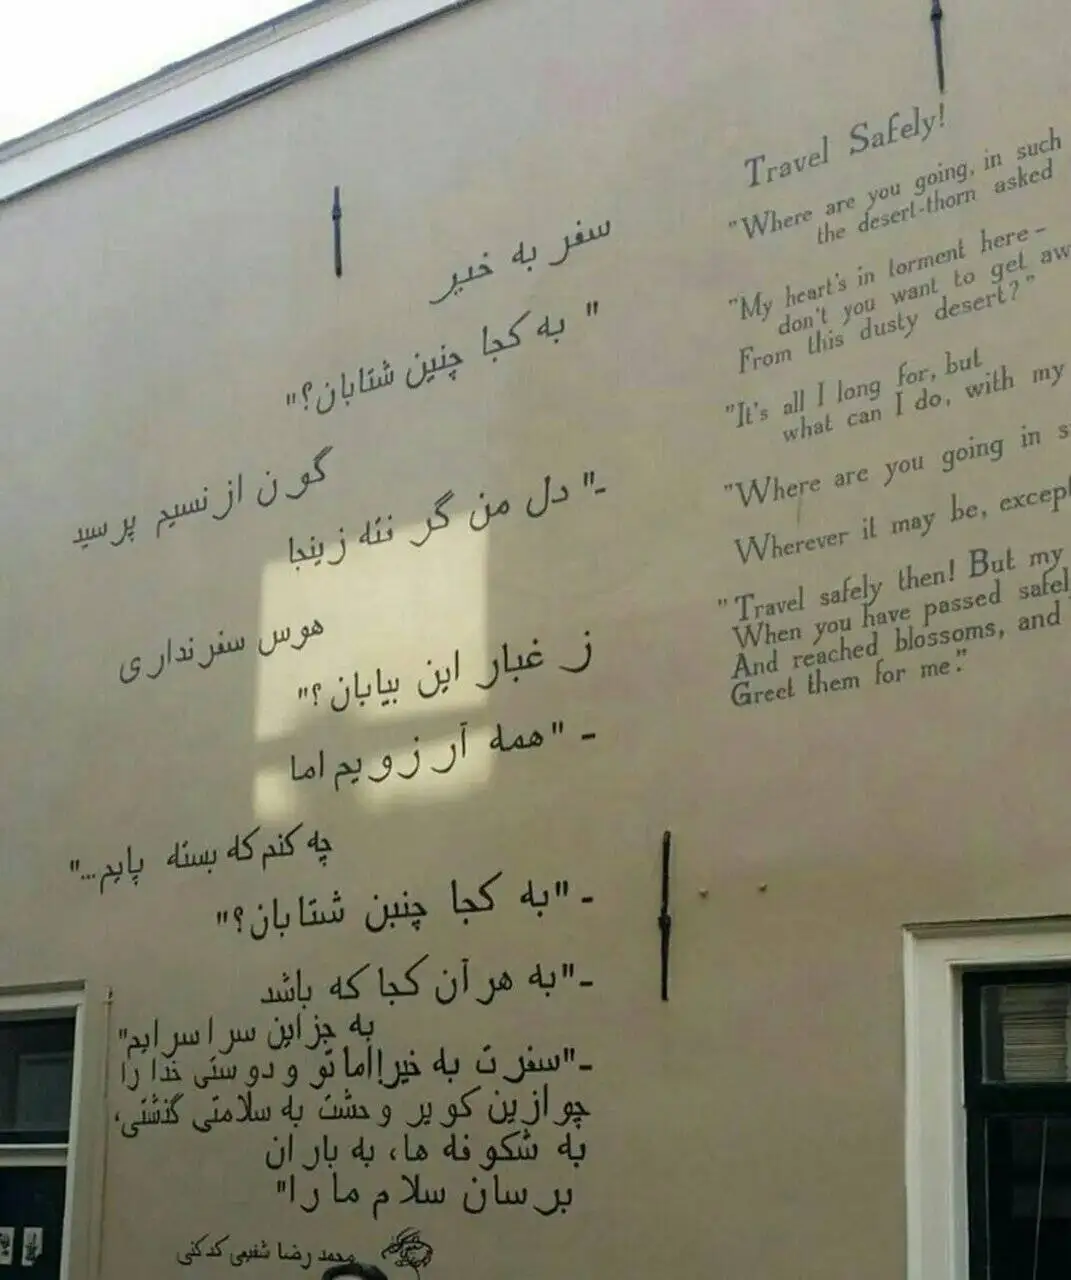 سفر به خیر
" به کجا چنین شتابان؟"
گون از نسیم پرسید
-" دل من گرفته زینجا
هوس سفر نداری
ز غبار این بیابان ؟"
- "همه آرزویم اما
چه کنم که بسته پایم..."
- "به کجا چنین شتابان؟"
-"به هر آن کجا که باشد
به جز این سرا سرایم"
-"سفرت به خیر!اما تو و دوستی خدا را
چو ازین کویر وحشت به سلامتی گذشتی،
به شکوفه ها، به باران
برسان سلام ما را"
محمدرضا شفیعی کدکنی
Travel Safely!
"Where are you going, in such
the desert-thorn asked
"My heart's in torment here –
don't you want to get
From this dusty desert?"
"It's all I long for, but
what can I do, with my
"Where are you going in
Wherever it may be, except
"Travel safely then! But my
When you have passed
And reached blossoms, and
Greet them for me."